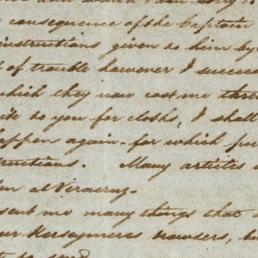 consequence of the Captain
instructions given to him by
of trouble however I succee
which they now cost me thre
ite to you for cloths, I shall
appen again - for which pu
tructions. Many articles
en at Veracruz -
sent me many things that
our Kerseymeres trowsers, bu